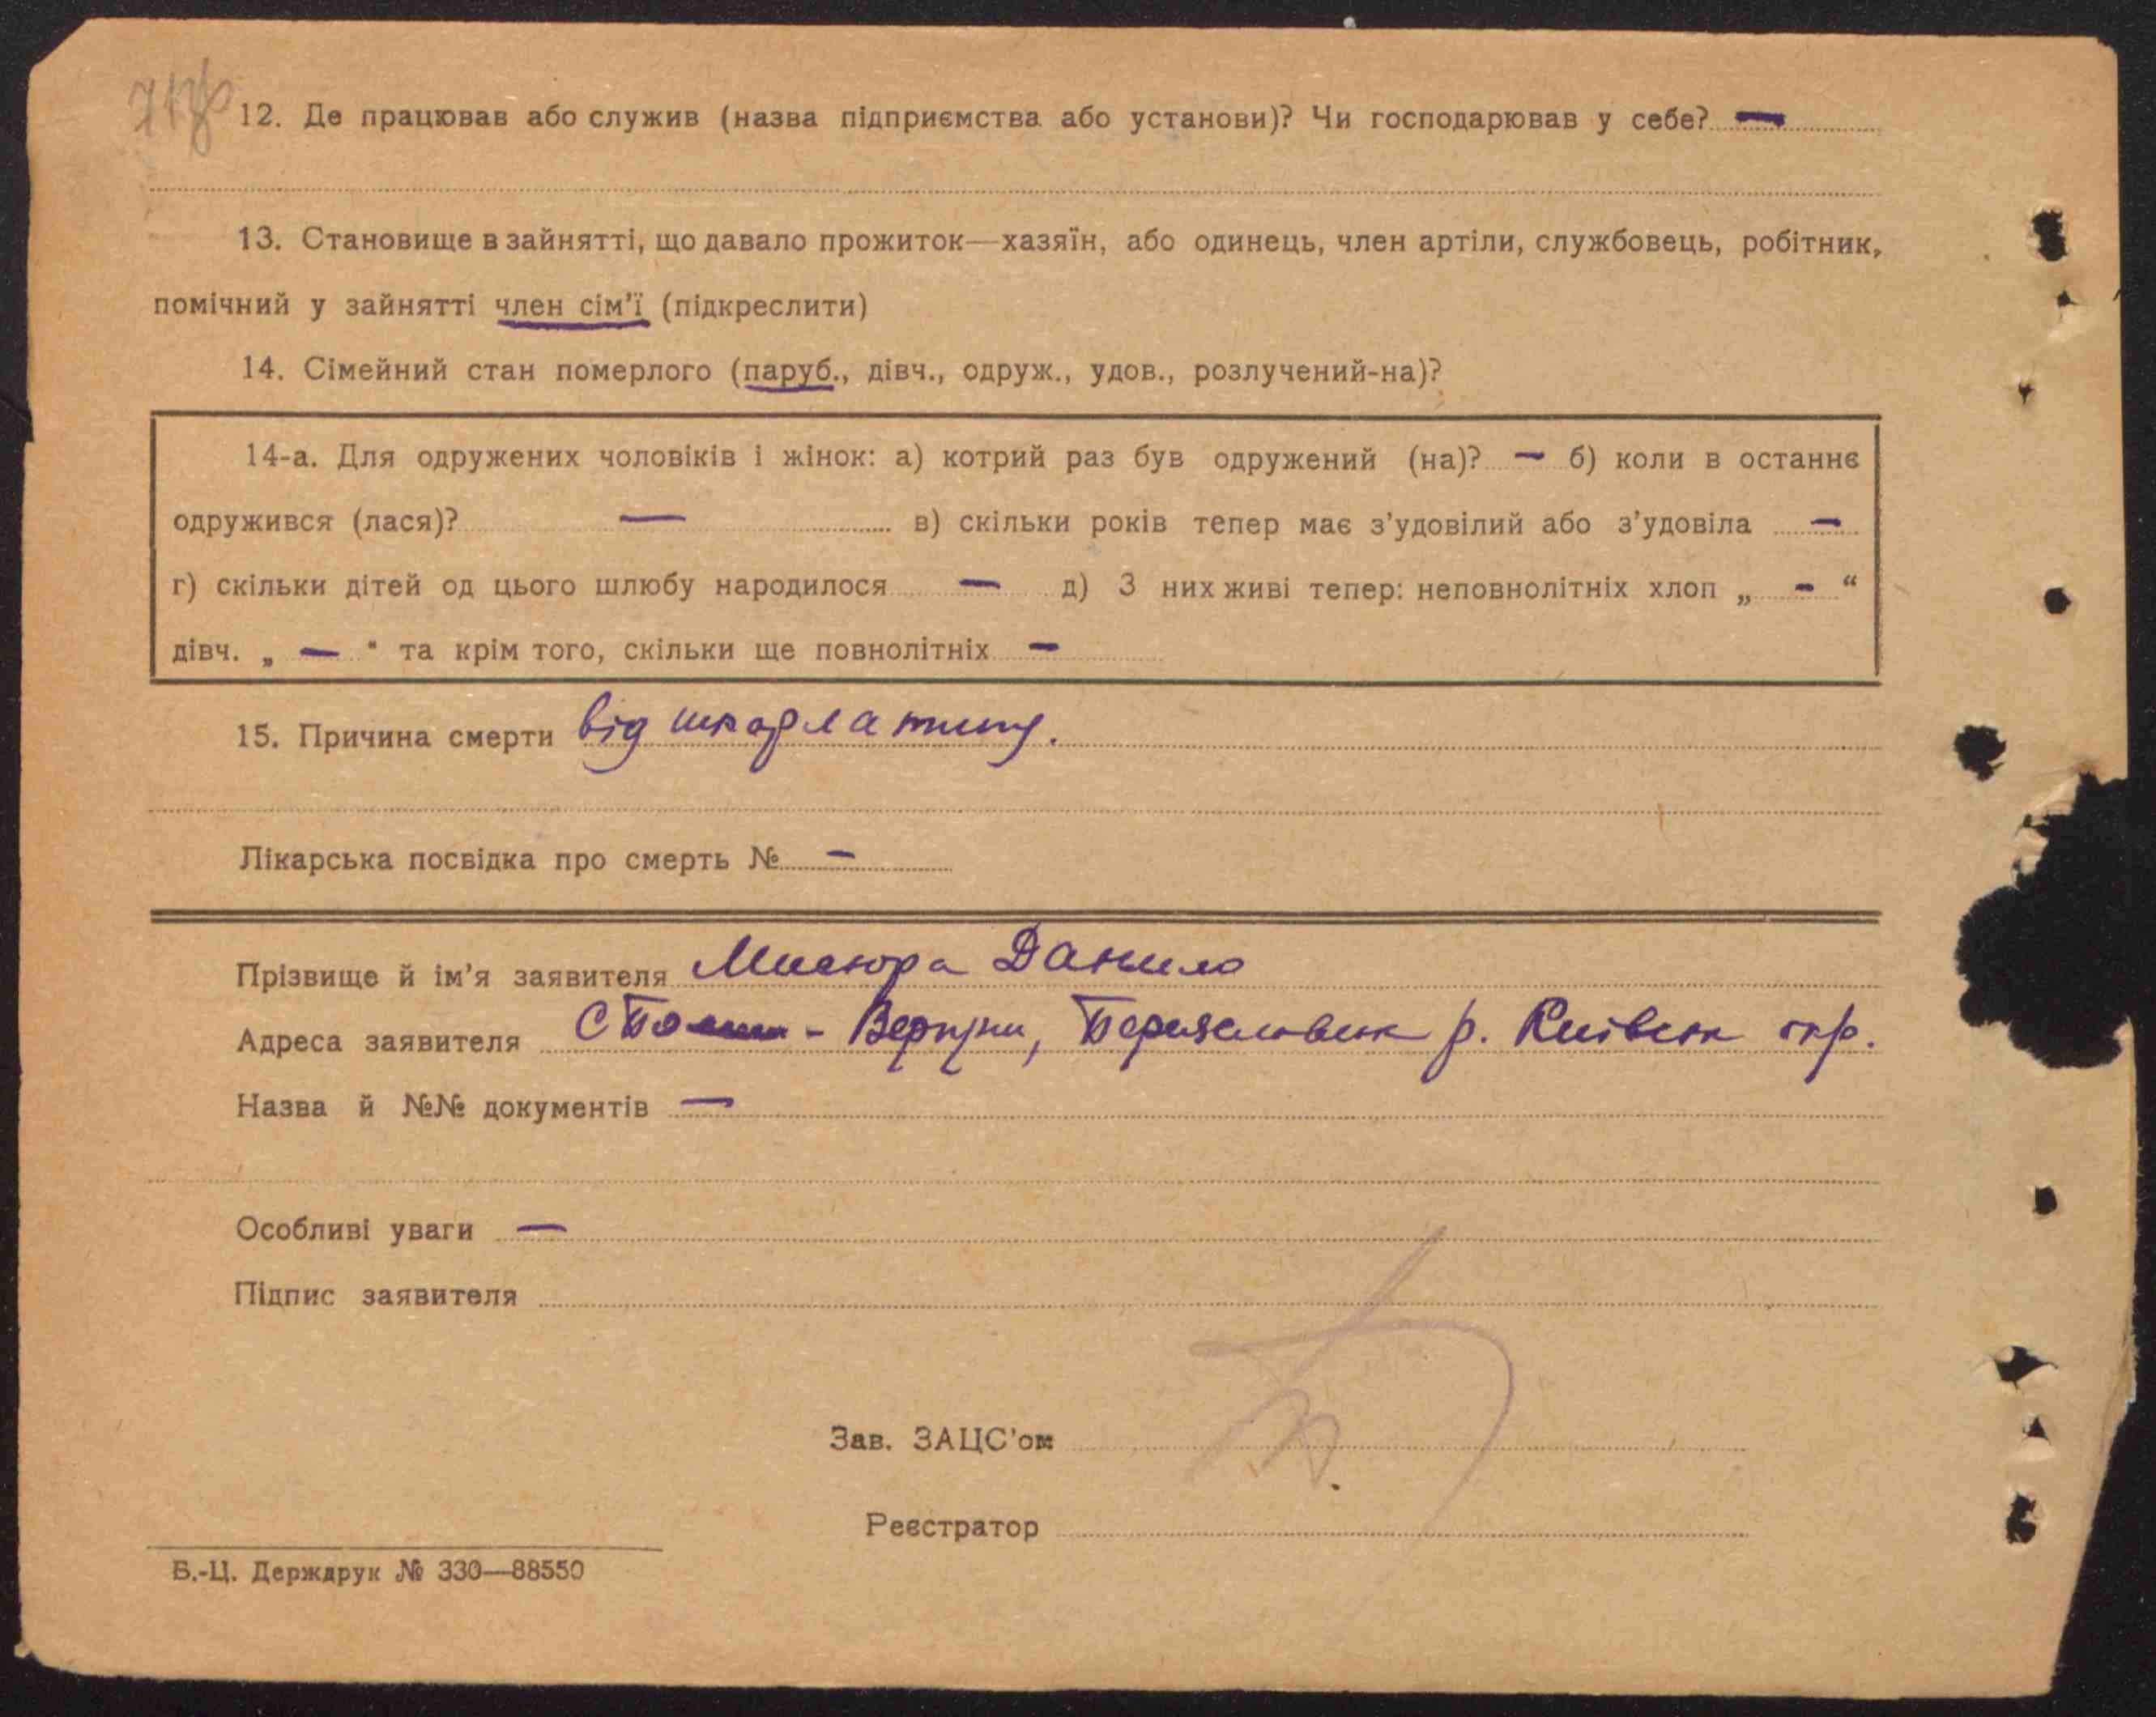 12. Де працював або служив (назва підприємства або установи)? Чи господарював у себе? —
13. Становище в зайнятті, що давало прожиток—хазяїн, або одинець, член артіли, службовець, робітник,
помічний у зайнятті член сім'ї (підкреслити)
14. Сімейний стан померлого (паруб., дівч., одруж., удов., розлучений-на)?
14-а. Для одружених чоловіків і жінок: а) котрий раз був одружений (на)? — б) коли в останнє
одружився (лася)? — в) скільки років тепер має з'удовілий або з'удовіла —
г) скільки дітей од цього шлюбу народилося — д) З них живі тепер: неповнолітніх хлоп „ - “
дівч. „ — “ та крім того, скільки ще повнолітніх —
15. Причина смерти від шкарлатини.
Лікарська посвідка про смерть № —
Прізвище й ім'я заявителя Мисюра Данило
Адреса заявителя С р. Київськ окр.
Назва й №№ документів —
Особливі уваги —
Підпис заявителя
Зав. ЗАЦС'ом
Реєстратор
Б.-Ц. Держдрук № 330—88550